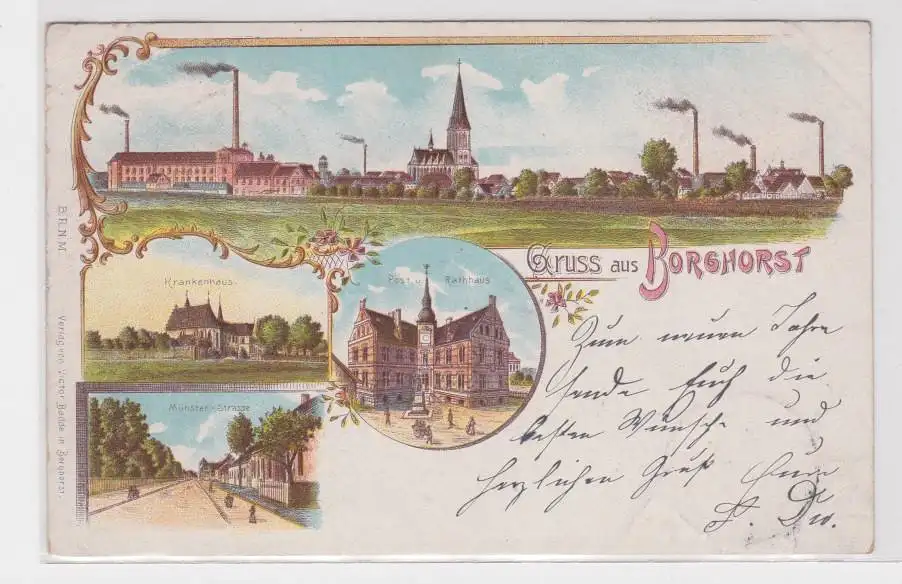 Gruss aus Borghorst
Krankenhaus.
Post u. Rathhaus
Münster-Strasse
B.R.N.M.
Verlag von Victor Badde in Borghorst.
Zum neuen Jahre
sende Euch die
besten Wünsche und
herzlichen Gruß Euer